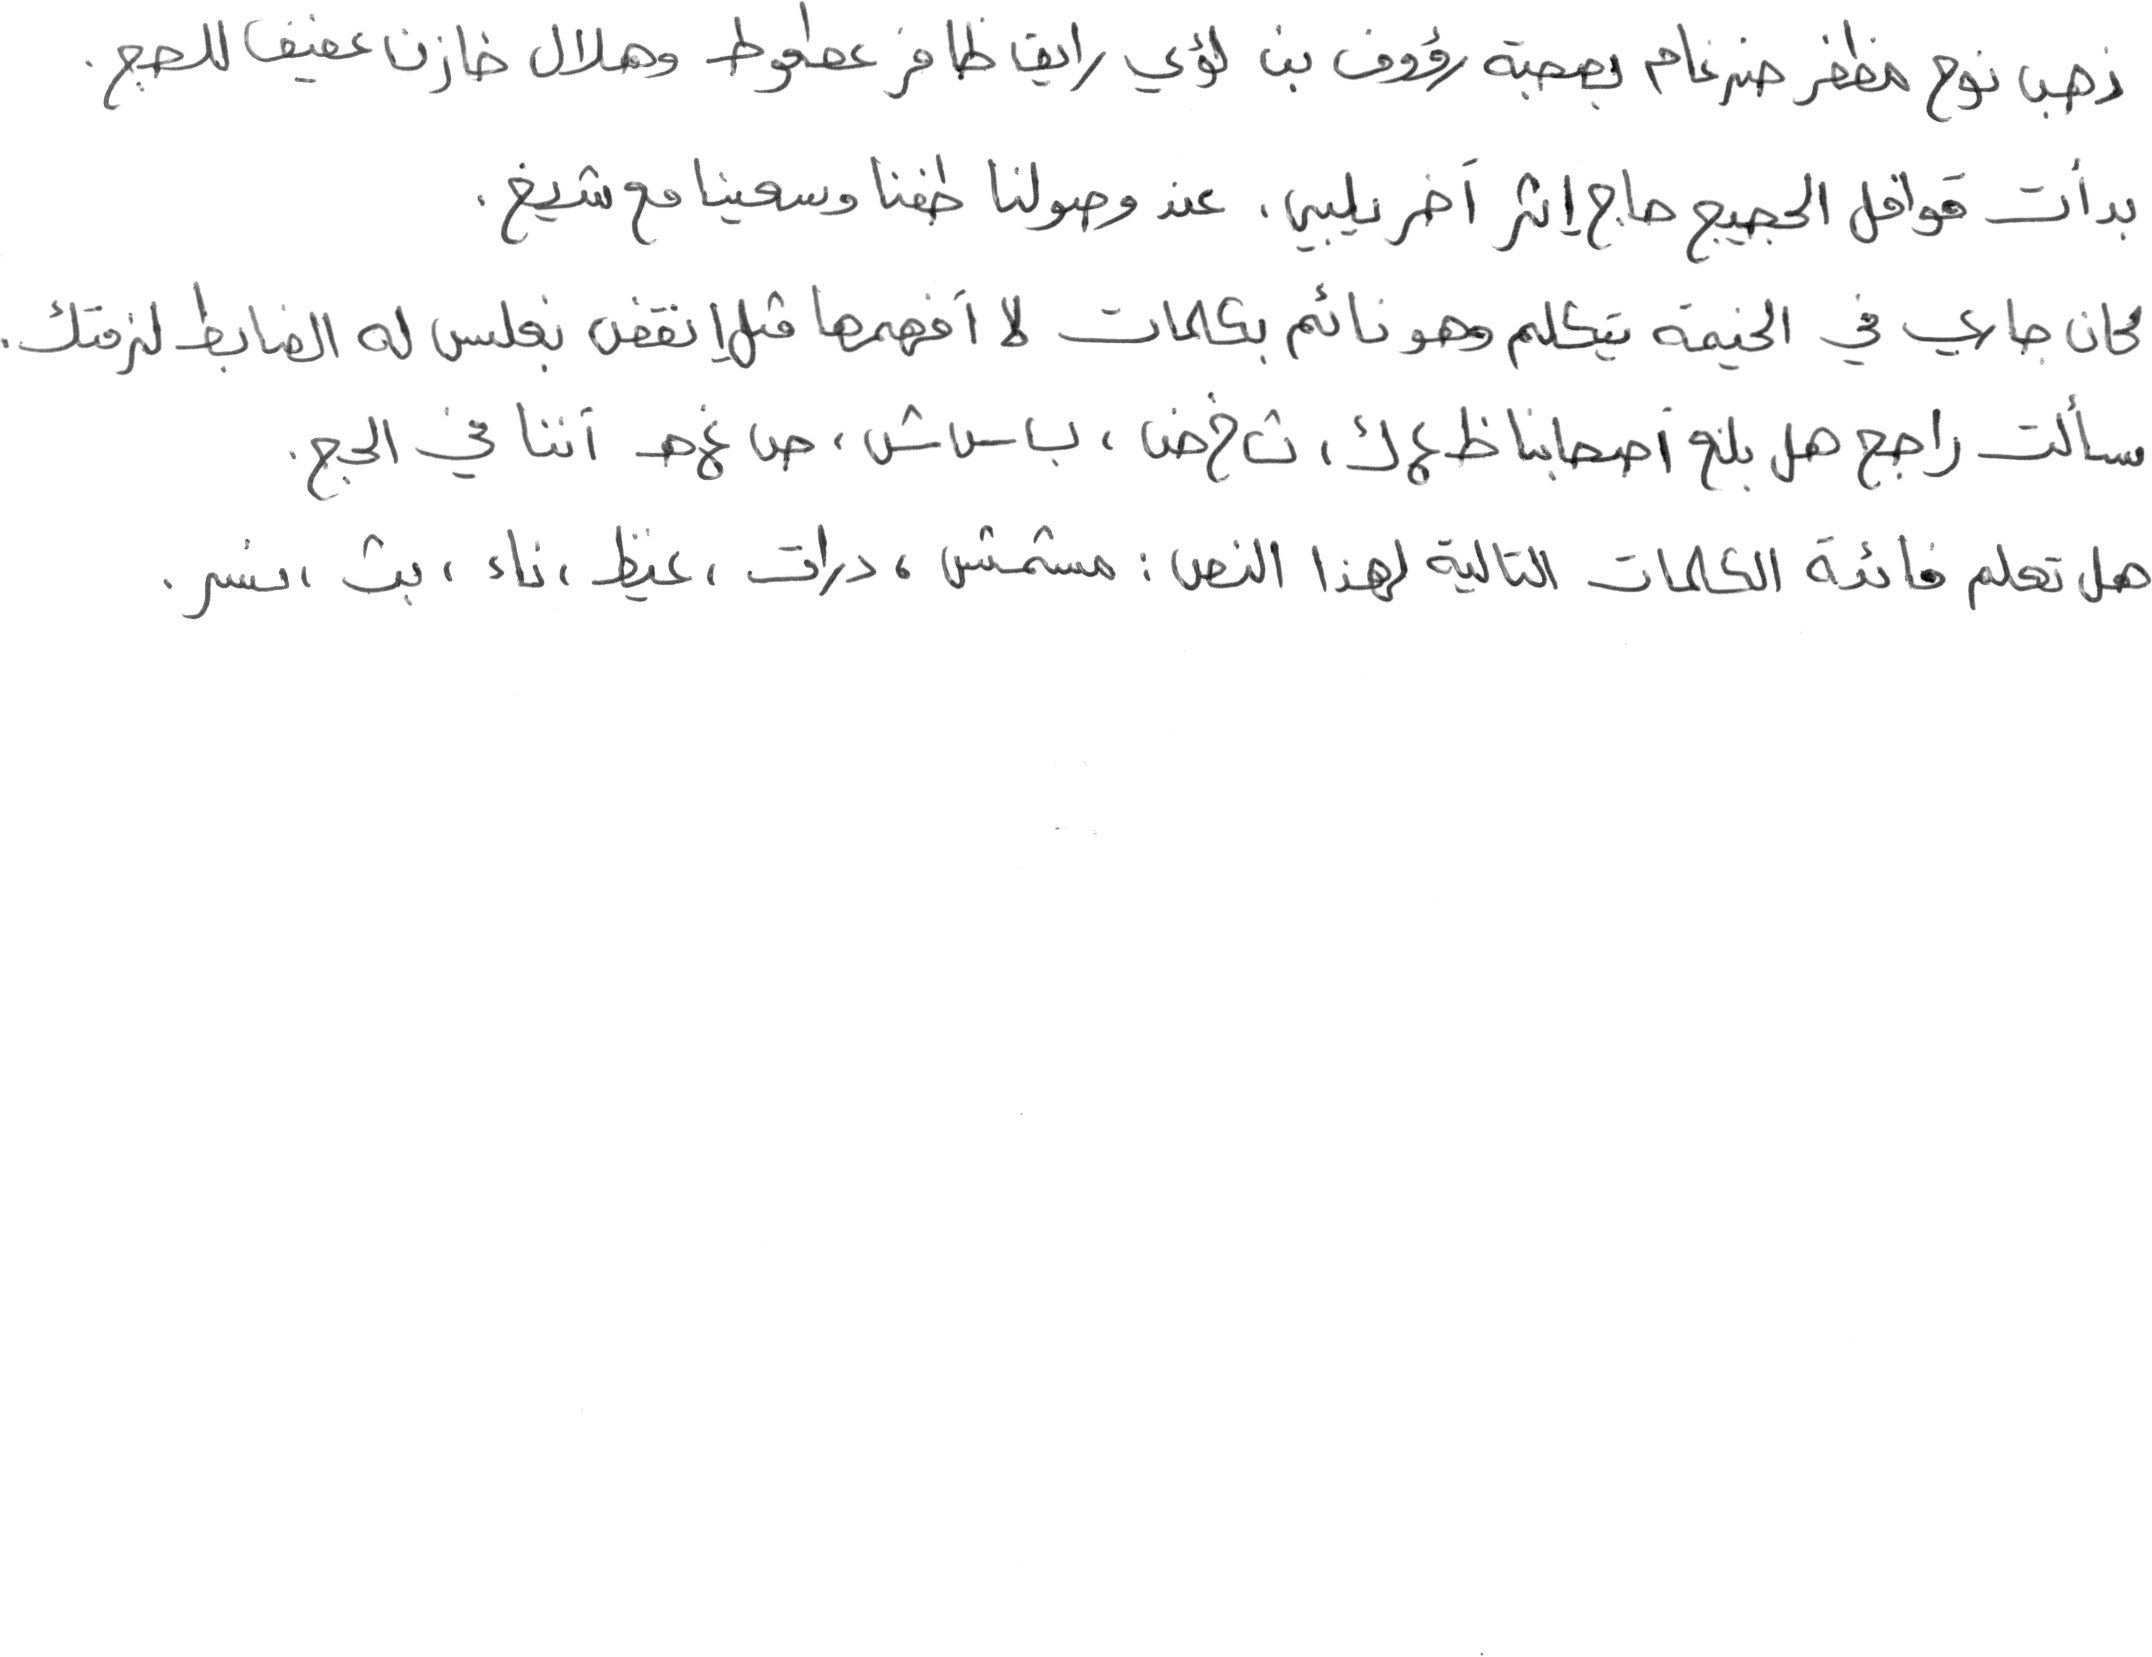 ذهب نوح مظفر ضرغام بصحبة رؤوف بن لؤي رايق ظافر عطعوط وهلال خازن عفيف للحج .
بدأت قوافل الحجيج حاج إثر آخر يلبي ، عند وصولنا طفنا وسعينا مع شيخ .
كان جاري في الخيمة يتكلم وهو نائم بكلمات لا أفهمها مثل إنقض بغلس له الضابط لزمتك .
سألت راجح هل بلغ أصحابنا ظ ع ك ، ث خ ض ، ب س ش ، ص غ هـ أننا في الحج .
هل تعلم فائدة الكلمات التالية لهذا النص : مشمش ، درات ، غيظ ، ناء ، بث ، نسر .